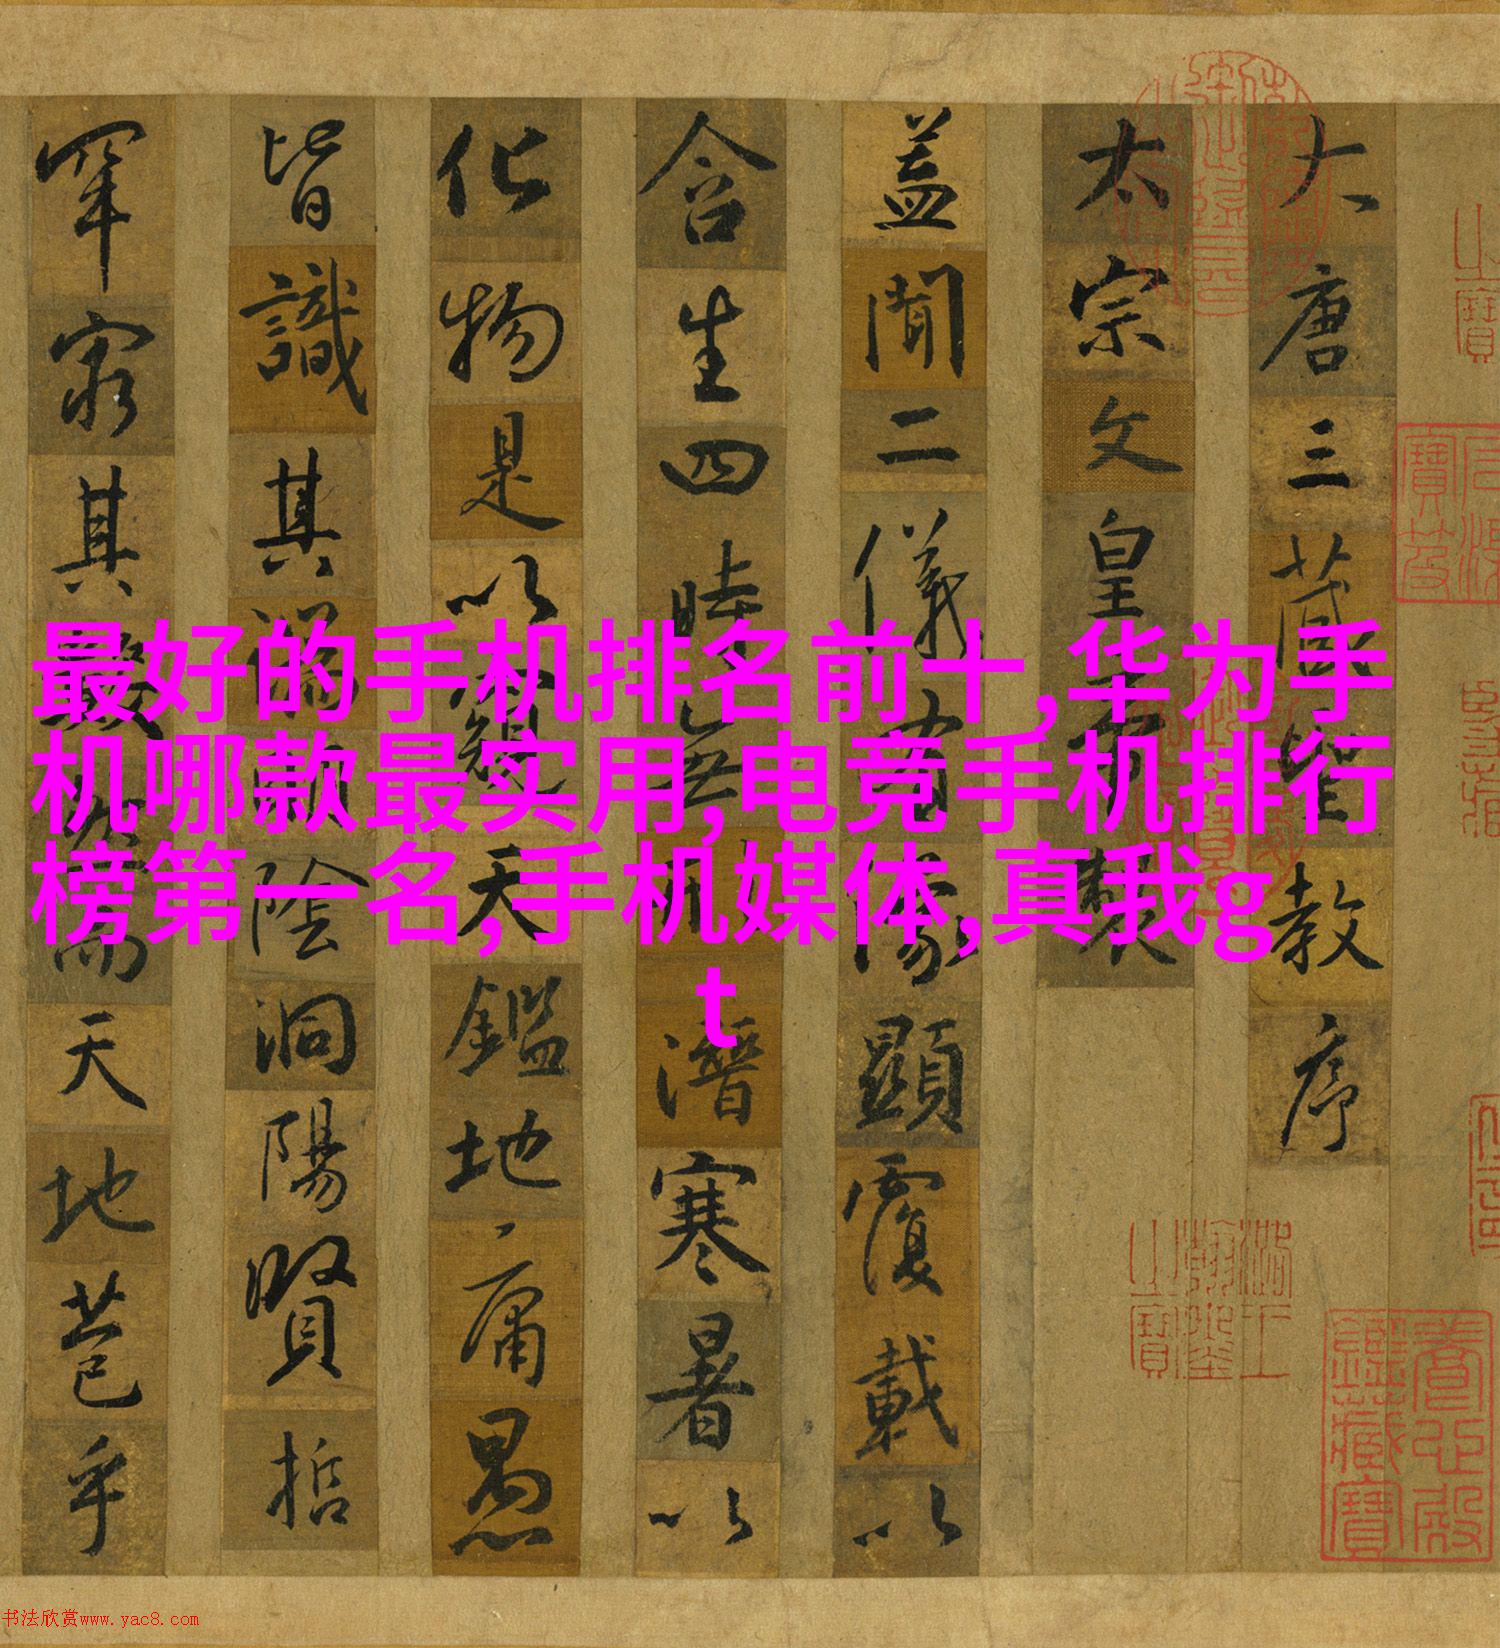 大唐三藏聖教序
太宗文皇帝製
蓋聞二儀有像顯覆載以
含生四時無形潛寒暑以
化物是以窺天鑑地庸愚
皆識其端明陰洞陽賢哲
罕窮其數然而天地苞乎
最好的手机排名前十,华为手
机哪款最实用,电竞手机排行
榜第一名,手机媒体,真我g
t
书法欣赏www.yac8.com